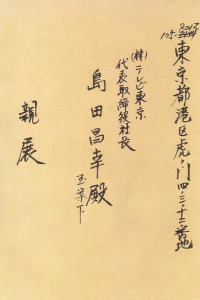 105-
東京都港区虎ノ門四・三・十二番地
(株)テレビ東京
代表取締役社長
島田昌幸殿
玉案下
親展